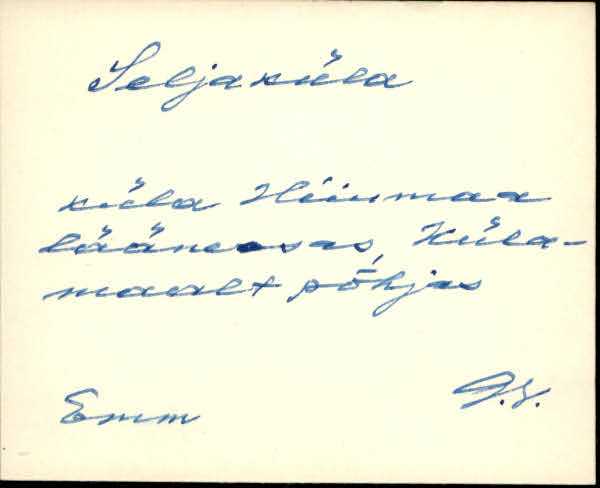 Seljaküla
küla Hiiumaa
lääneosas, Küla-
maalt põhjas
Emm